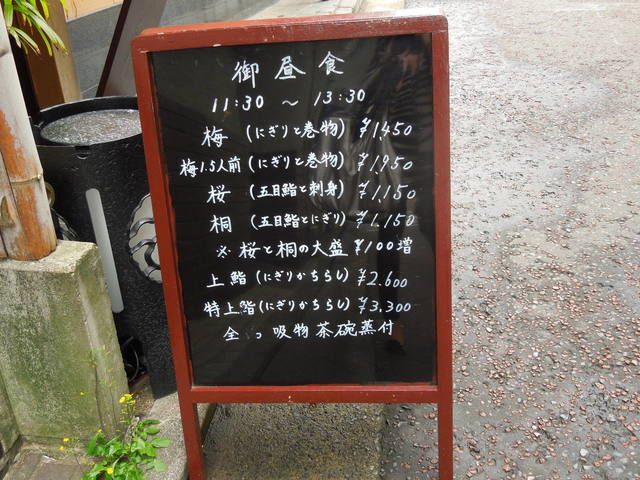 御昼食
11:30 ～ 13:30
梅 (にぎりと巻物) ¥1,450
梅1.5人前 (にぎりと巻物) ¥1,950
桜 (五目鮨と刺身) ¥1,150
桐 (五目鮨とにぎり) ¥1,150
※ 桜と桐の大盛 ¥100増
上鮨 (にぎりかちらし) ¥2,600
特上鮨 (にぎりかちらし) ¥3,300
全 吸物 茶碗蒸付